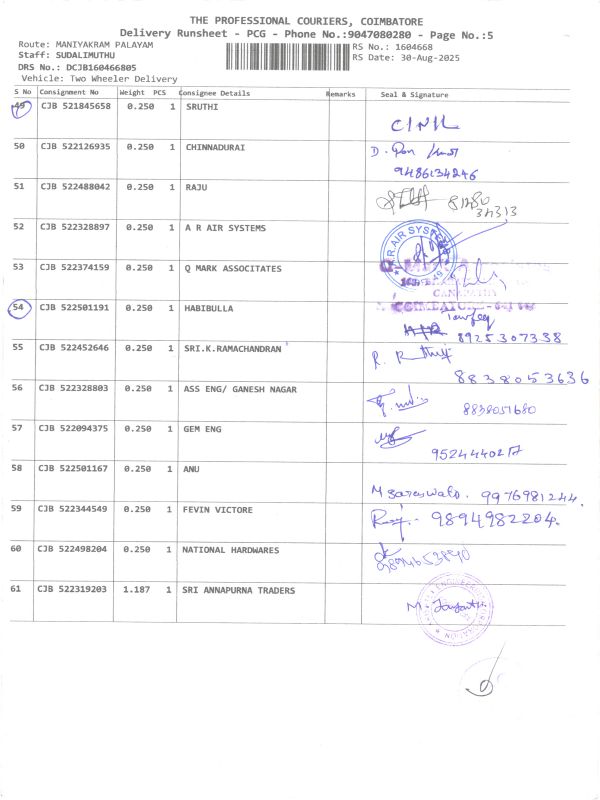 THE PROFESSIONAL COURIERS, COIMBATORE
Delivery Runsheet - PCG - Phone No.:9047080280 - Page No.:5
Route: MANIYAKRAM PALAYAM RS No.: 1604668
Staff: SUDALIMUTHU RS Date: 30-Aug-2025
DRS No.: DCJB160466805
Vehicle: Two Wheeler Delivery
S No Consignment No Weight PCS Consignee Details Remarks Seal & Signature
49 CJB 521845658 0.250 1 SRUTHI
50 CJB 522126935 0.250 1 CHINNADURAI D.
9486134246
51 CJB 522488042 0.250 1 RAJU
52 CJB 522328897 0.250 1 A R AIR SYSTEMS
53 CJB 522374159 0.250 1 Q MARK ASSOCITATES
54 CJB 522501191 0.250 1 HABIBULLA
8925307338
55 CJB 522452646 0.250 1 SRI.K.RAMACHANDRAN R.
8838053636
56 CJB 522328803 0.250 1 ASS ENG/ GANESH NAGAR
8838051680
57 CJB 522094375 0.250 1 GEM ENG
58 CJB 522501167 0.250 1 ANU
9976981244.
59 CJB 522344549 0.250 1 FEVIN VICTORE 9894982204.
60 CJB 522498204 0.250 1 NATIONAL HARDWARES
61 CJB 522319203 1.187 1 SRI ANNAPURNA TRADERS